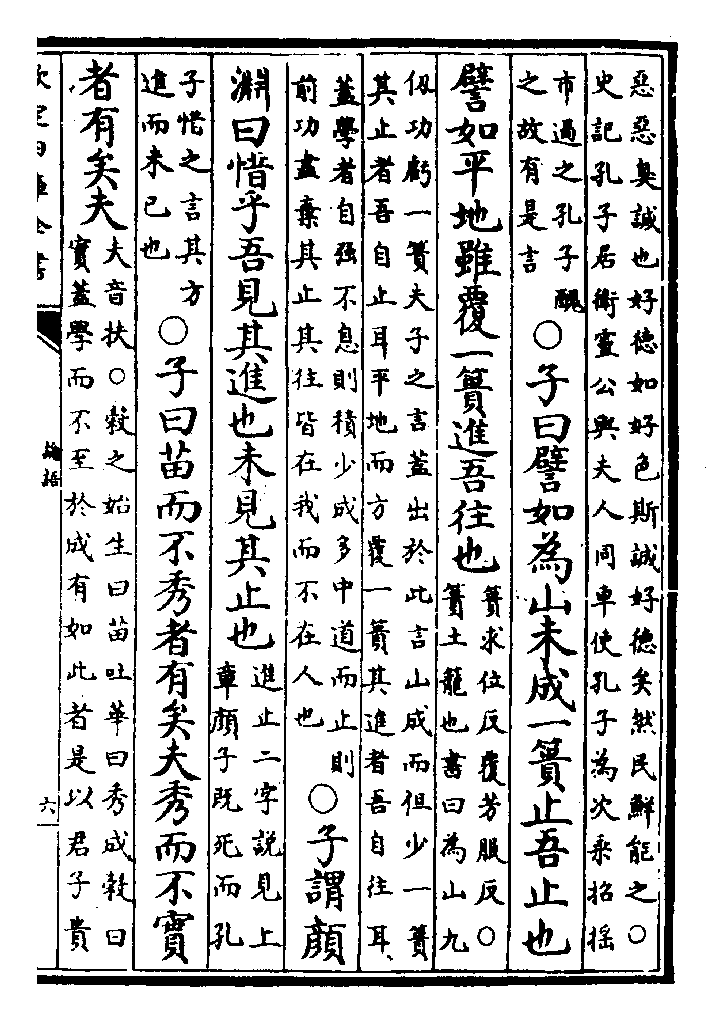 惡惡臭誠也好德如好色斯誠好德矣然民鮮能之○
史記孔子居衛靈公與夫人同車使孔子為次乘招搖
市過之孔子醜
之故有是言
○子曰譬如為山未成一簣止吾止也
譬如平地雖覆一簣進吾往也
簣求位反覆芳服反○
簣土籠也書曰為山九
仭功虧一簣夫子之言蓋出於此言山成而但少一簣
其止者吾自止耳平地而方覆一簣其進者吾自往耳
蓋學者自强不息則積少成多中道而止則
前功盡棄其止其往皆在我而不在人也
○子謂顔
淵曰惜乎吾見其進也未見其止也
進止二字說見上
章顔子既死而孔
子惜之言其方
進而未已也
○子曰苗而不秀者有矣夫秀而不實
者有矣夫
夫音扶○穀之始生曰苗吐華曰秀成穀曰
實蓋學而不至於成有如此者是以君子貴
欽定四庫全書
論語
六